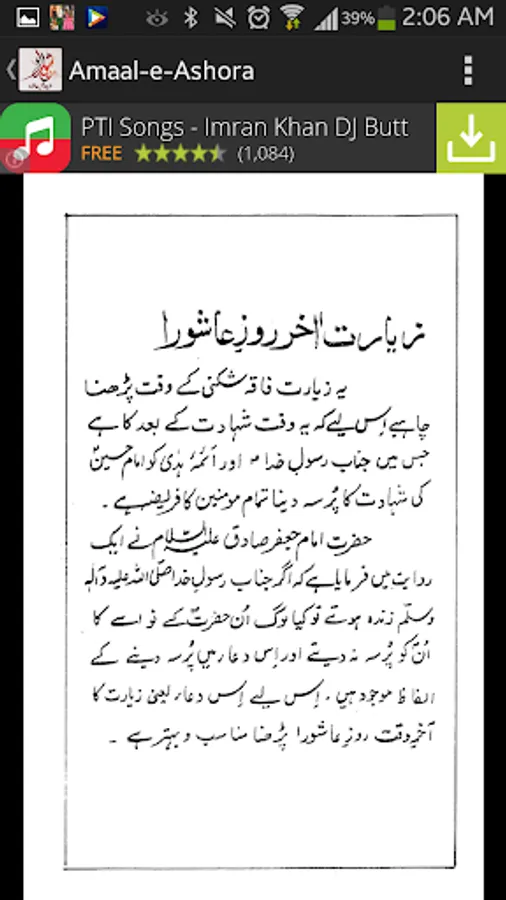 39% 2:06 AM
Amaal-e-Ashora
PTI Songs - Imran Khan DJ Butt
FREE (1,084)
زیارت آخر روزِ عاشورا
یہ زیارت فاقہ شکنی کے وقت پڑھنا
چاہیے اِس لیے کہ یہ وقت شہادت کے بعد کا ہے
جس میں جناب رسولِ خدا ؐ اور آئمۂ ہدیٰ کو امام حسینؑ
کی شہادت کا پُرسہ دینا تمام مومنین کا فریضہ ہے ۔
حضرت امام جعفر صادق علیہ السلام نے ایک
روایت میں فرمایا ہے کہ اگر جناب رسولِ خدا صلی اللہ علیہ وآلہٖ
وسلّم زندہ ہوتے تو کیا لوگ اُن حضرتؐ کے نواسے کا
اُن کو پُرسہ نہ دیتے اور اِس دعا میں پُرسہ دینے کے
الفاظ موجود ہیں ، اِس لیے اِس دعا، یعنی زیارت کا
آخرِ وقت روزِ عاشورا پڑھنا مناسب و بہتر ہے ۔